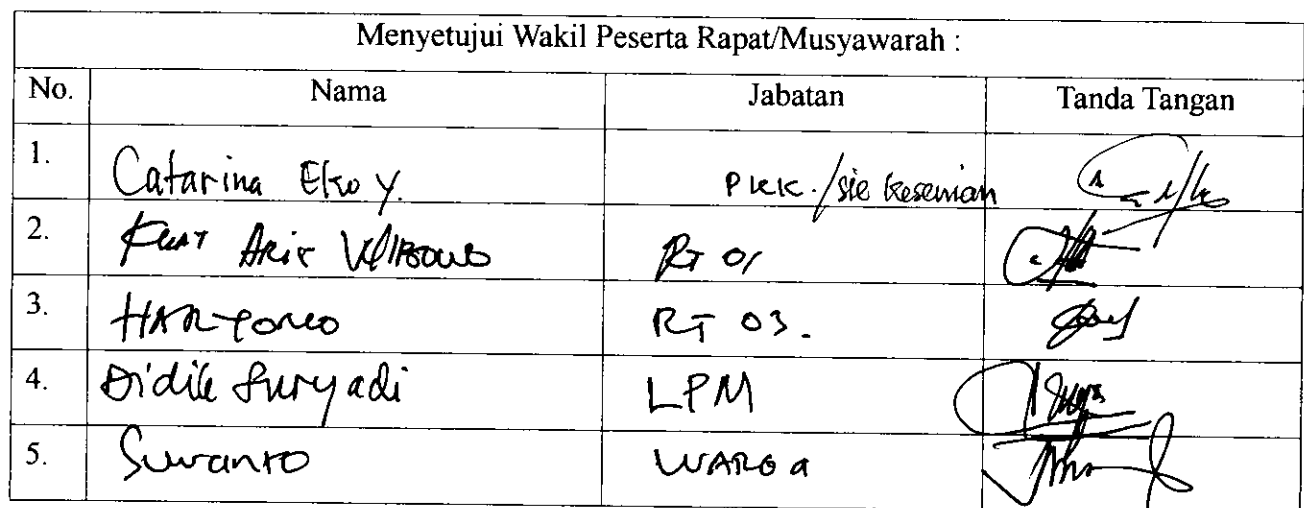 Menyetujui Wakil Peserta Rapat/Musyawarah :
No. Nama Jabatan Tanda Tangan
1. Catarina Eko Y. PKK./sie kesenian
2. Kuat Arif Wibowo RT 01
3. HARYONO RT 03.
4. Didik Suryadi LPM
5. Suwanto WARGa